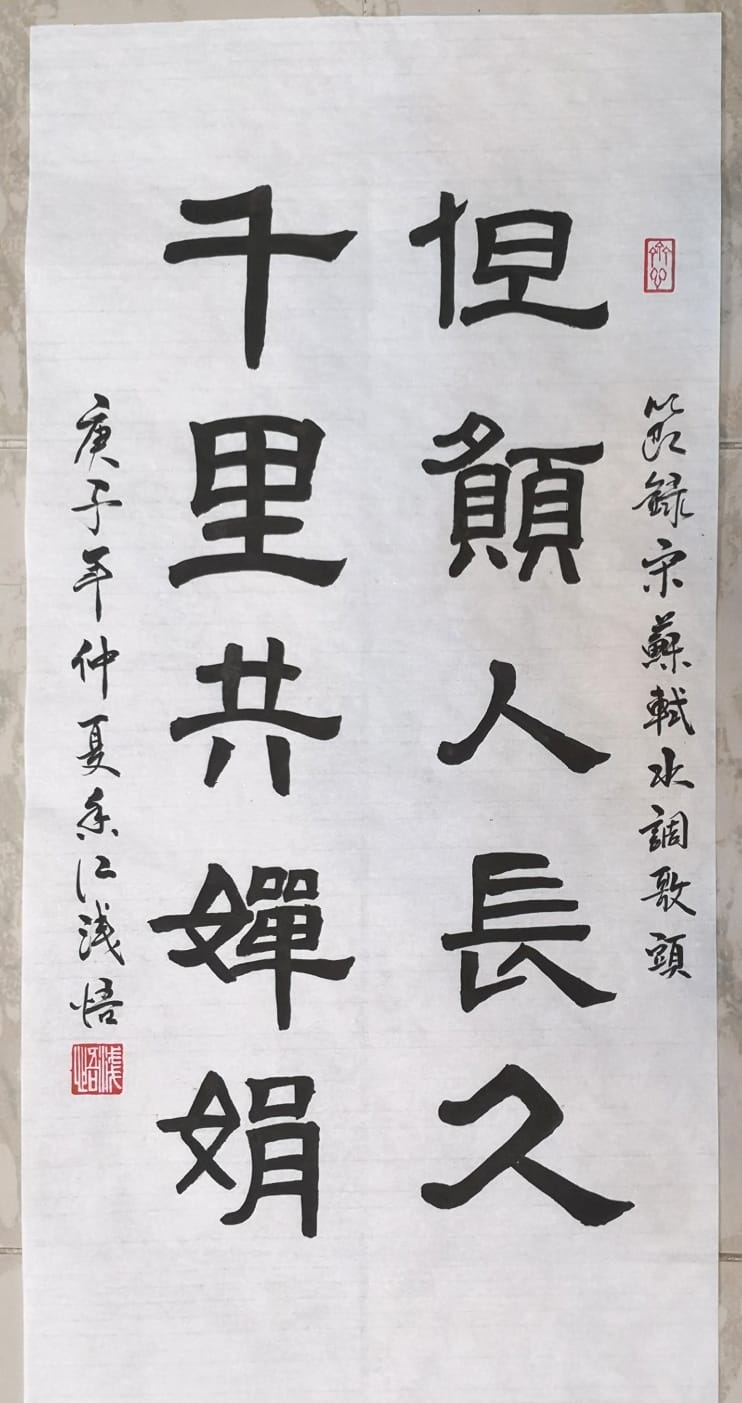 節録宋蘇軾水調歌頭
但願人長久
千里共嬋娟
庚子年仲夏香江浅悟